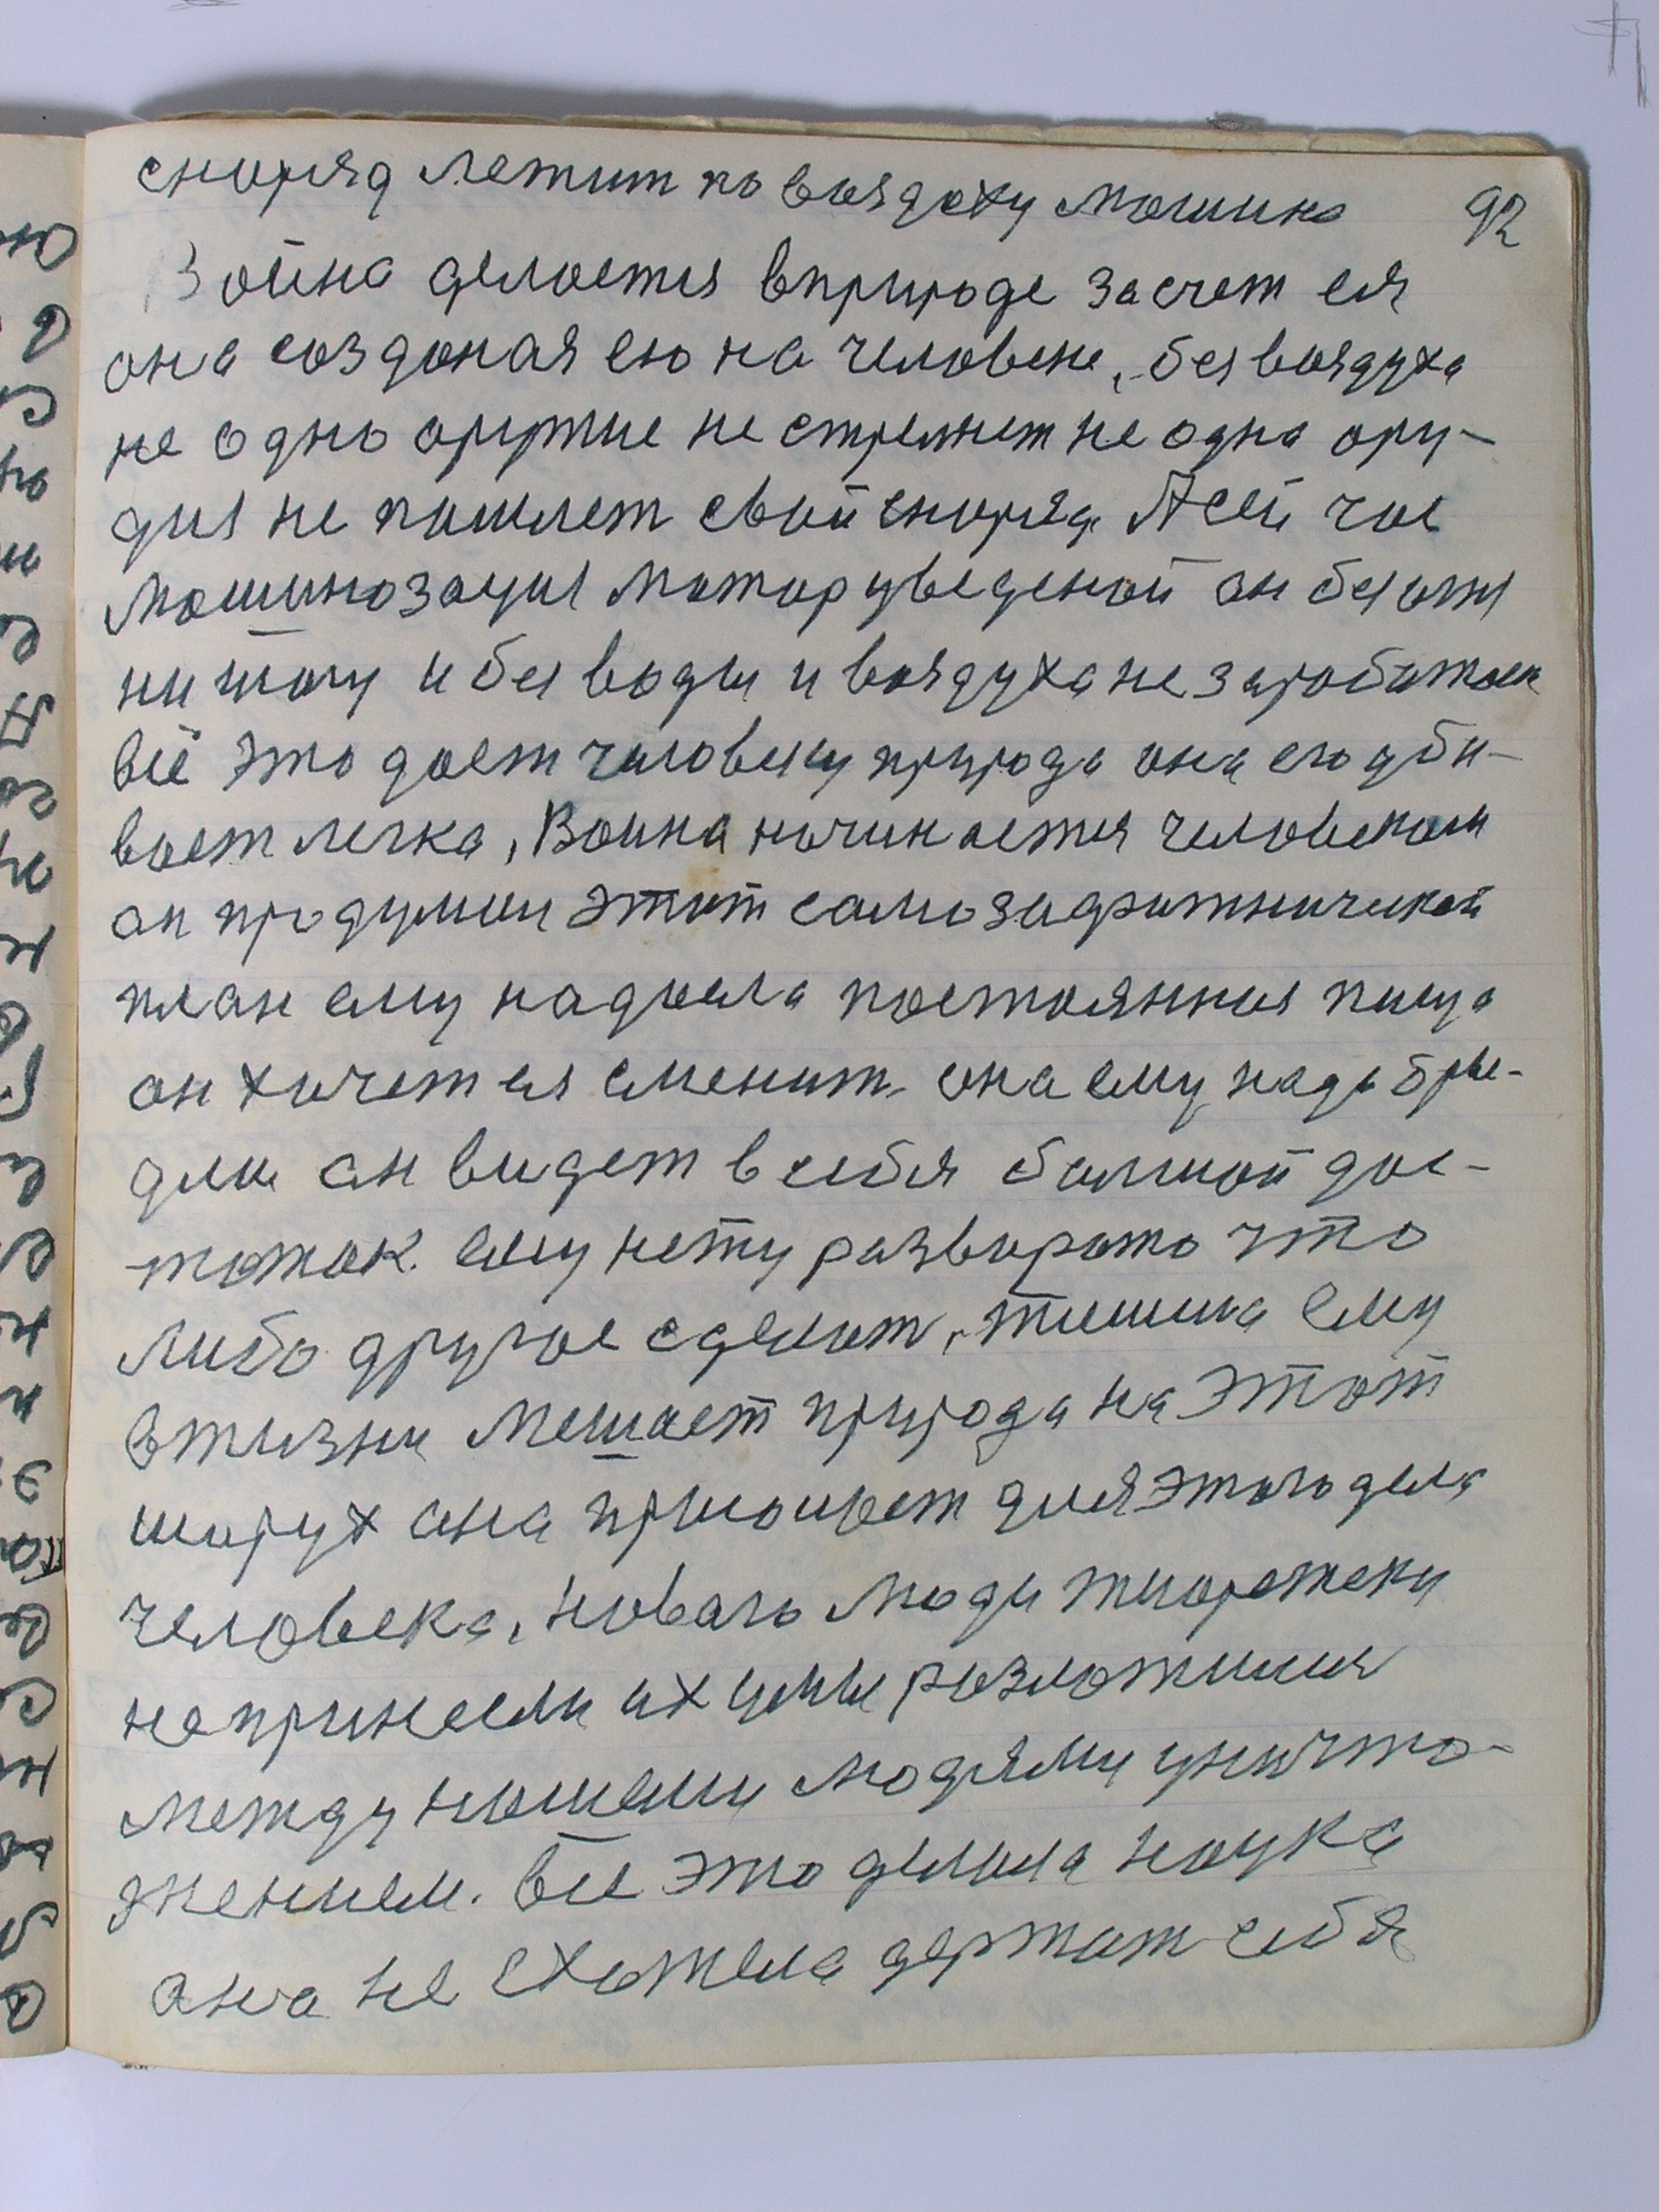 сноряд летит по воздоху мошина 92
Война делоется вприроде засчет ея
она создоная ею на человеке, без воздуха
не одно оружие не стрелнет не одна ору-
дия не пошлет свой сноряд. А сей час
мошинозация мотор уведеной он без отн
ни шагу и без воды и воздуха не заработоет
всё это доет человеку природа она его уби-
воет легка, Воина ночинается человеком
он продумал этот самозадрожнический
план ему надоела постоянная пища
он хочет ея сменит она ему надо
он видет в себя болшой дос-
-тоток ему нету разворота что
либо другое сделат, тишина ему
вжизни мешает природа на этот
шорух она для этого дела
человека, новаго люди
непринесли их умы розложилися
между ношеми людями уничто-
жением. все это делала наука
она не схотела держат себя